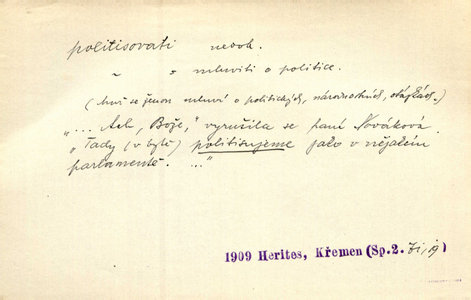 politisovati nedok.
~ = mluviti o politice.
(muž se ženou mluví o politických, národnostních, otázkách.)
"... Ach, Bože," vyrušila se paní Nováková.
"Tady (v bytě) politisujeme jako v nějakém
parlamentě. ..."
1909 Herites, Křemen (Sp.2.